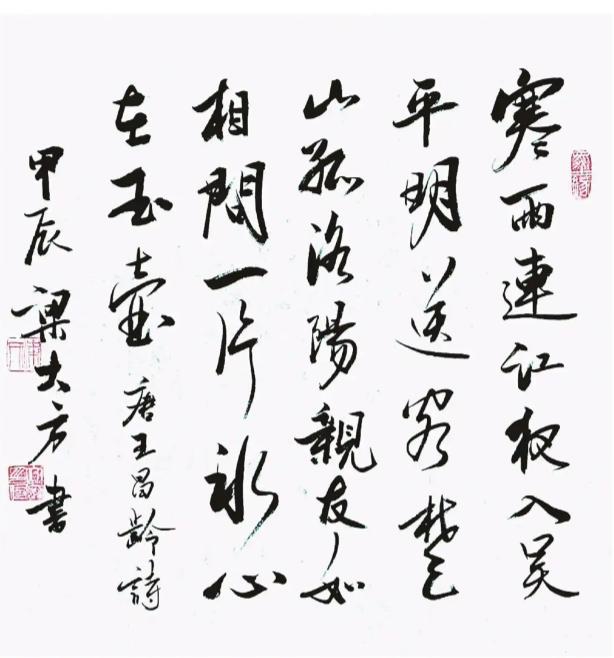 寒雨連江夜入吴
平明送客楚
山孤洛陽親友如
相間一片冰心
在玉壺 唐王昌齡詩
甲辰梁大方書